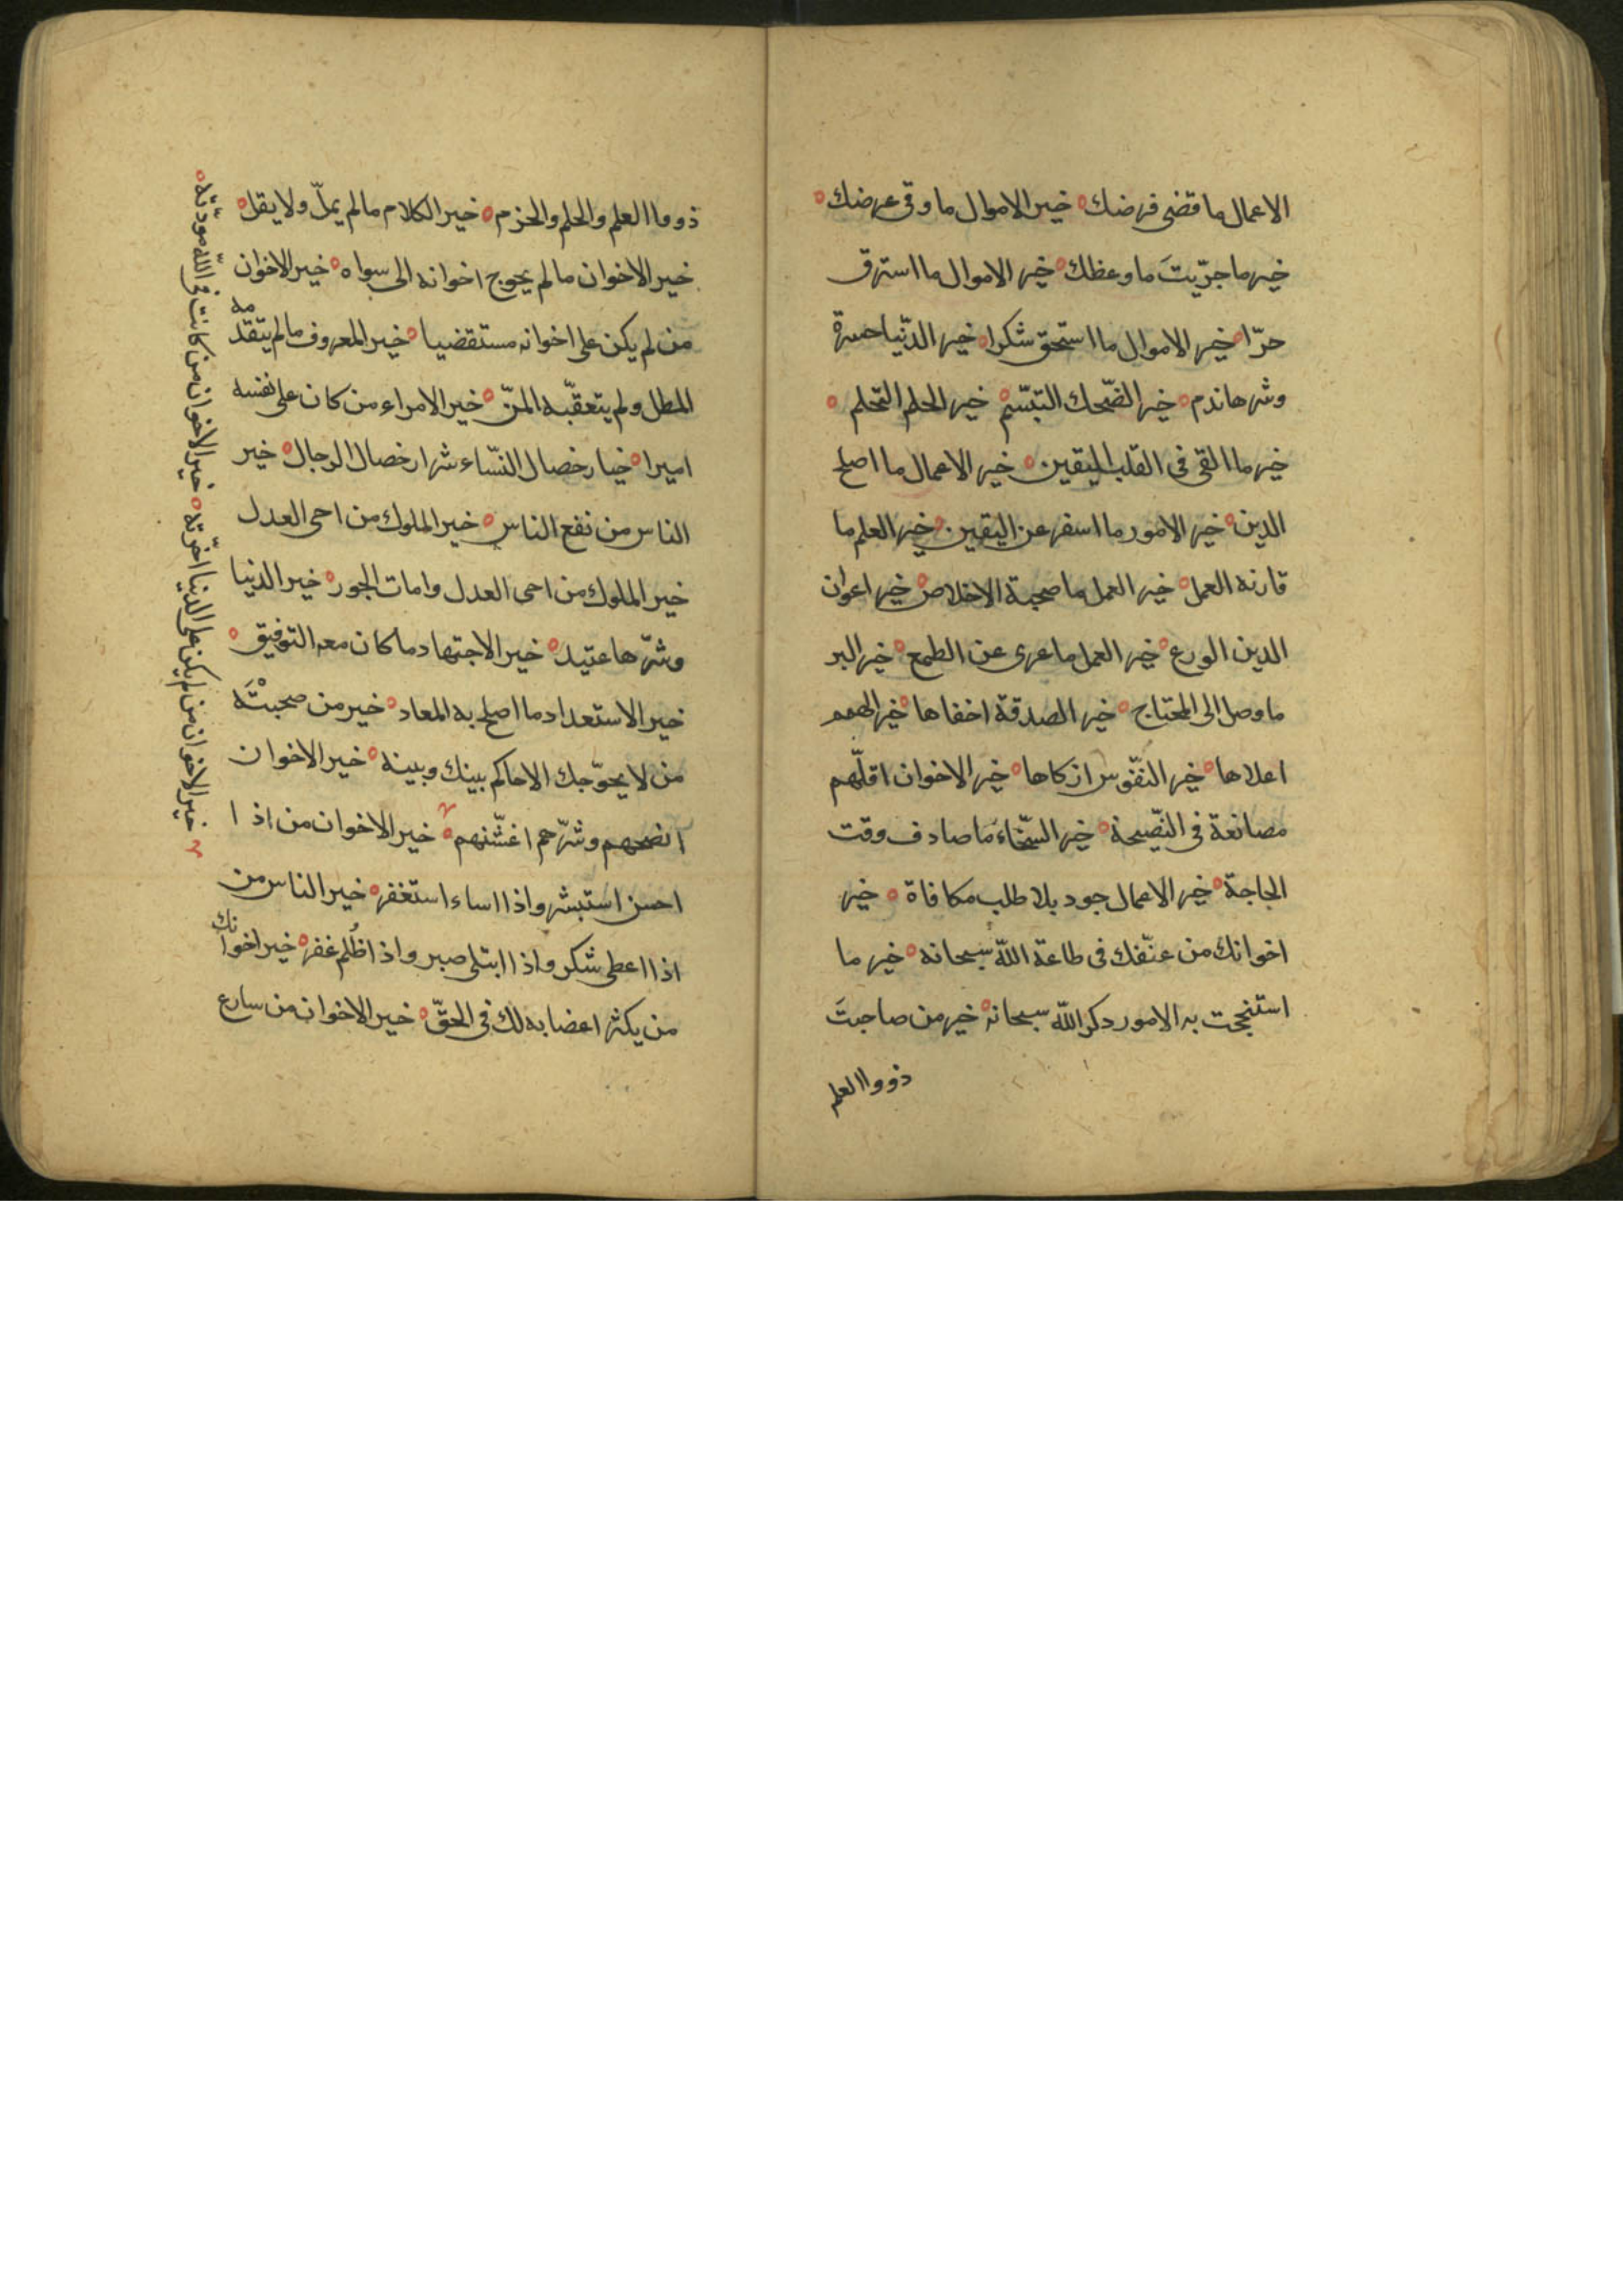 الاعمال ما قضى فرضك ه خير الاموال ما وقى عرضك ه
خير ما جرّبتَ ما وعظك ه خير الاموال ما استرق
حرّا ه خير الاموال ما استحق شكرا ه خير الدّنيا حسرة
وشرها ندم ه خير الضّحك التبسّم ه خير الحلم التحلم ه
خير ما القى فى القلب اليقين ه خير الاعمال ما اصلح
الدين ه خير الامور ما اسفر عن اليقين ه خير العلم ما
قارنه العمل ه خير العمل ما صحبة الاخلاص ه خير اعوان
الدين الورع ه خير العمل ما عرى عن الطمع ه خير البر
ما وصل الى المحتاج ه خير الصدقة اخفاها ه خير الهمم
اعلاها ه خير النفّوس ازكاها ه خير الاخوان اقلّهم
مصانعة فى النّصيحة ه خير السّخاءَ ما صادف وقت
الحاجة ه خير الاعمال جود بلا طلب مكافاة ه خير
اخوانك من عنّفك فى طاعة اللّه سبحانه ه خير ما
استنجحت به الامور دكر اللّه سبحانه ه خير من صاحبتَ
ذووا العلم
ذووا العلم والحلم والحزم ه خير الكلام مالم يملّ ولا يقل ه
خير الاخوان مالم يحوج اخوانه الى سواه ه خير الاخوان
من لم يكن على اخوانه مستقضيا ه خير المعروف مالم يتقدمه
المطل ولم يتعقبّه المنّ ه خير الامراء من كان على نفسه
اميرا ه خيار خصال النسّاء شرار خصال الرجال ه خير
الناس من نفع الناس ه خير الملوك من احى العدل
خير الملوك من احى العدل وامات الجور ه خير الدنيا
وشرّها عتيد ه خير الاجتهاد ما كان معه التوفيق ه
خير الاستعداد ما اصلح به المعاد ه خير من صحبتْهَ
من لا يحوّجك الا حاكم بينك وبينه ه خير الاخوان
انصحهم وشرّهم اغشّنهم ه خير الاخوان من اذا
احسن استبشر واذا اساء استغفر ه خير الناس من
اذا اعطى شكر واذا ابتلى صبر واذا ظُلم غفر ه خير اخوانك
من يكثر اغضابه لك فى الحقّ ه خير الاخوان من سارع
خير الاخوان من لم يكن على الدنيا اخوّته ه خير الاخوان من كانت فى اللّه مودّته ه